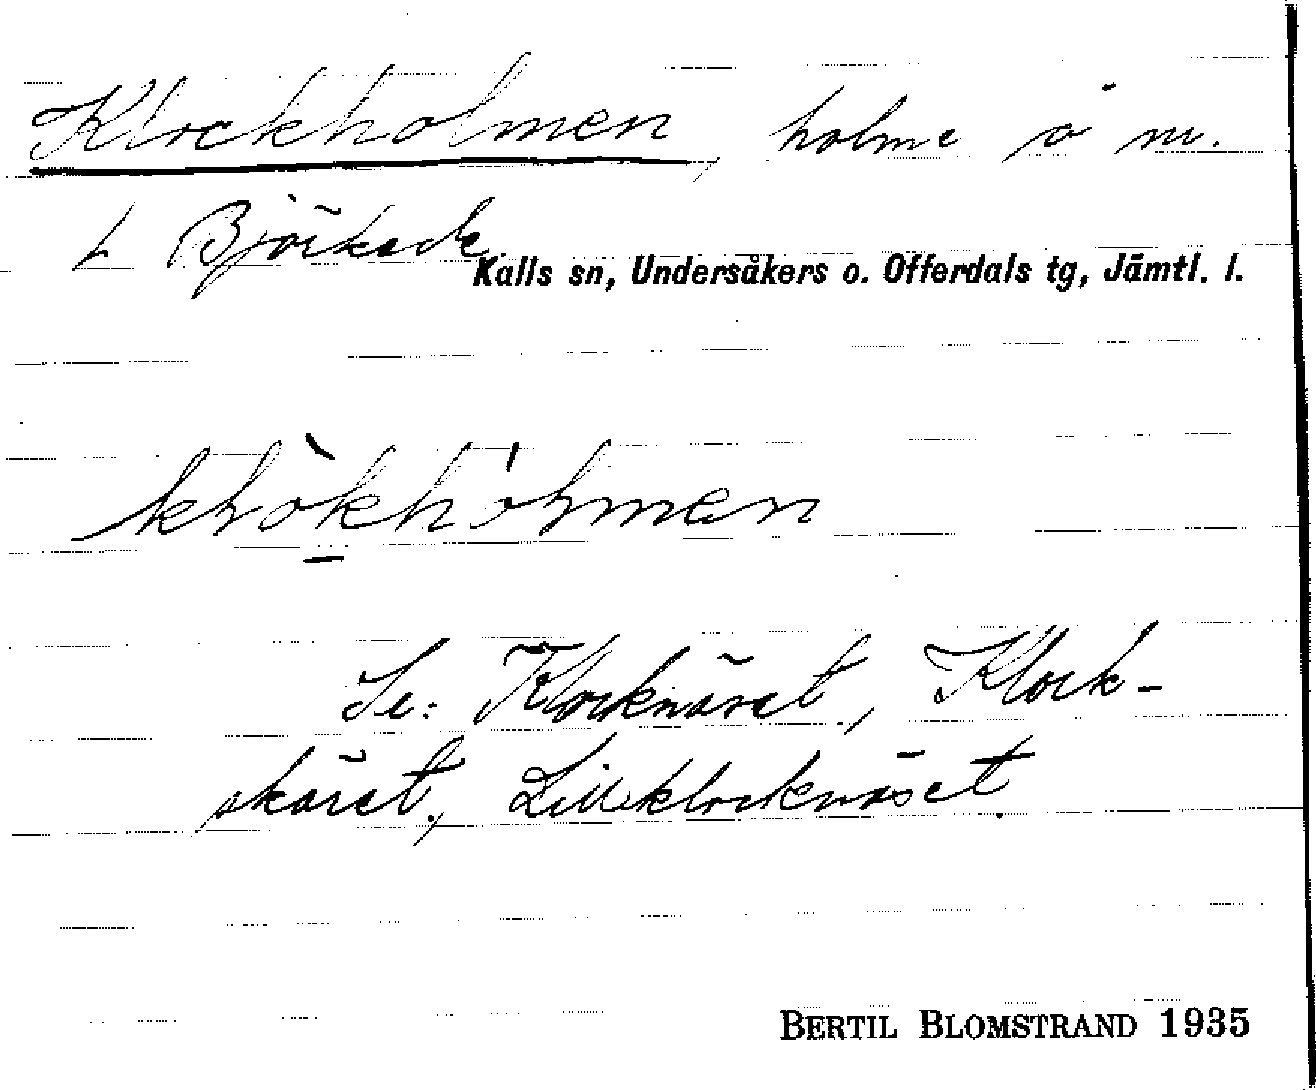 Klockholmen, holme o nv.
t Björkede
Kalls sn, Undersåkers o. Offerdals tg, Jämtl. l.
Se: Klocknäset, Klock-
skäret, Lillklocknäset.
BERTIL BLOMSTRAND 1935